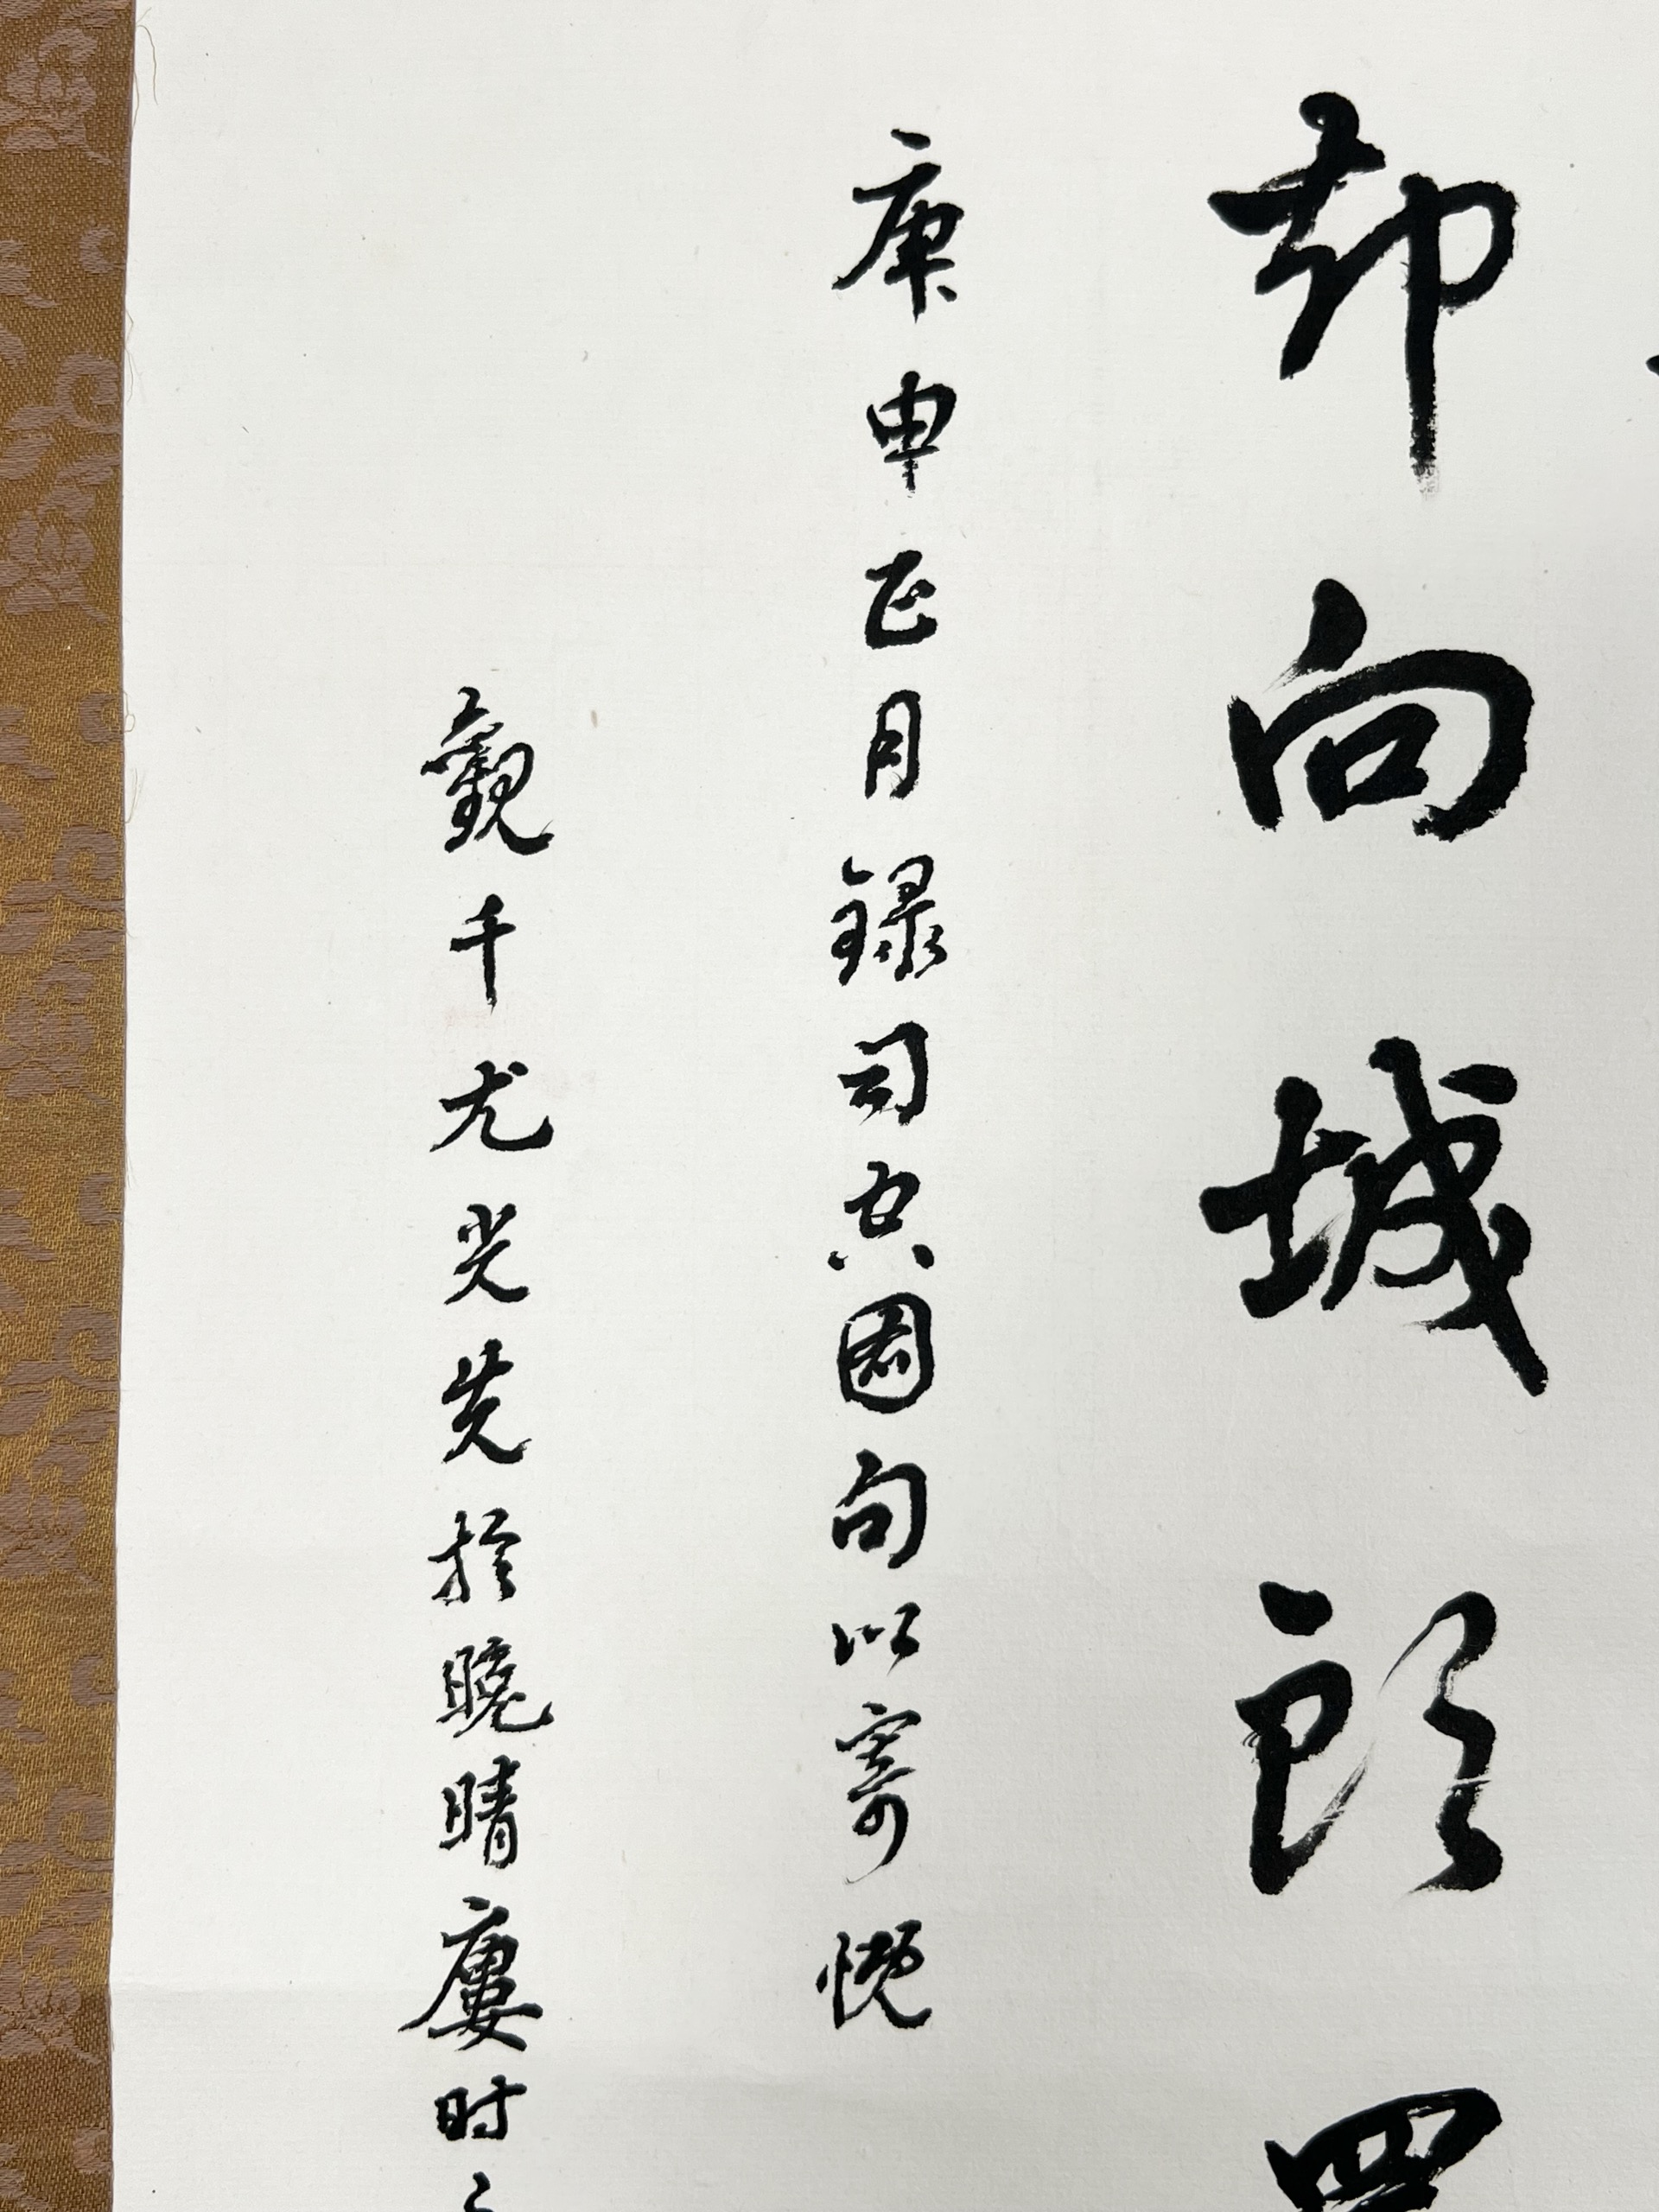 却向城頭
庚申正月録司空圖句以寄慨
觀千尤光於曉晴廔時